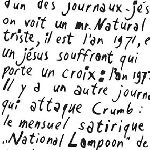 d'un des journaux-jés
on voit un mr. Natural
triste, il est l'an 1971, e
un jésus souffrant qui
porte un croix: l'an 197
Il y a un autre journ
qui attaque Crumb:
le mensuel satirique
"National Lampoon" de